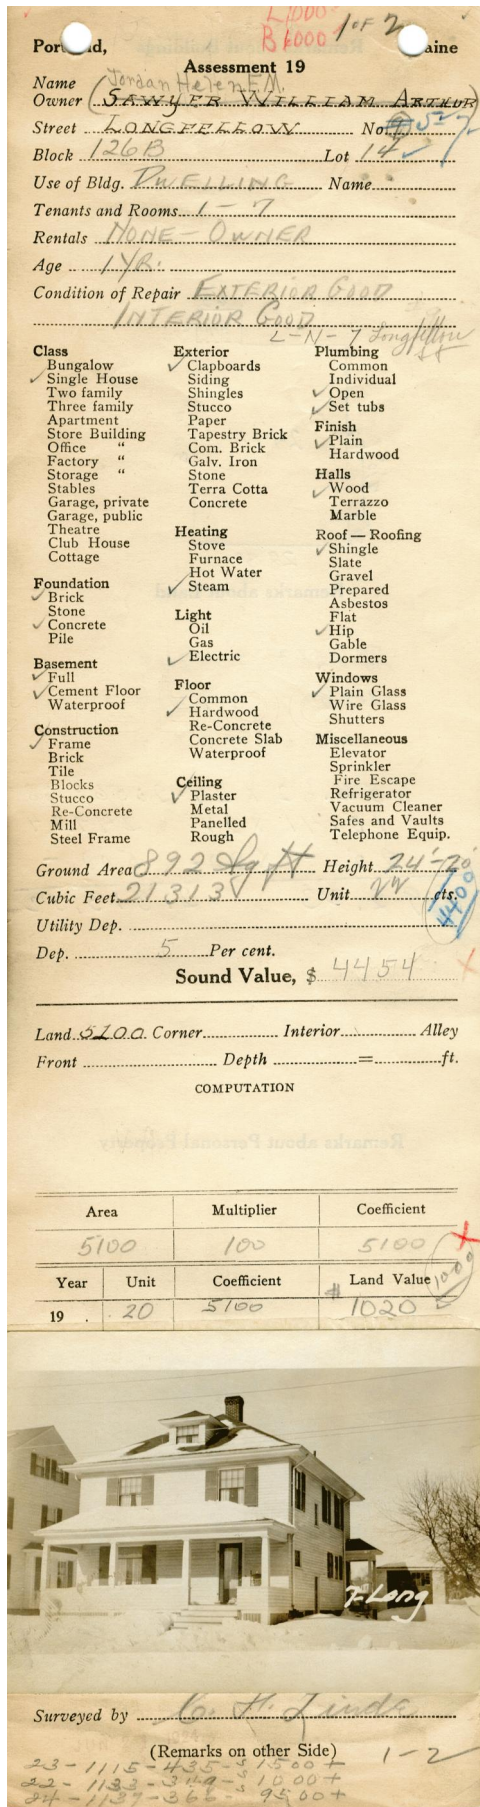 L1000
B 6000 1 OF 2
Portland, Maine
Assessment 19
Jordan Helen E.M.
Name
Owner (SAWYER WILLIAM ARTHUR)
Street LONGFELLOW No. 7 52
Block 126B Lot 14
Use of Bldg. DWELLING Name
Tenants and Rooms 1-7
Rentals NONE - OWNER
Age 1 YR.
Condition of Repair EXTERIOR GOOD
INTERIOR GOOD
L-N-7 Longfellow St
Class
Bungalow
✓ Single House
Two family
Three family
Apartment
Store Building
Office "
Factory "
Storage "
Stables
Garage, private
Garage, public
Theatre
Club House
Cottage
Foundation
✓ Brick
Stone
✓ Concrete
Pile
Basement
✓ Full
✓ Cement Floor
Waterproof
Construction
✓ Frame
Brick
Tile
Blocks
Stucco
Re-Concrete
Mill
Steel Frame
Exterior
✓ Clapboards
Siding
Shingles
Stucco
Paper
Tapestry Brick
Com. Brick
Galv. Iron
Stone
Terra Cotta
Concrete
Heating
Stove
Furnace
Hot Water
✓ Steam
Light
Oil
Gas
✓ Electric
Floor
Common
✓ Hardwood
Re-Concrete
Concrete Slab
Waterproof
Ceiling
✓ Plaster
Metal
Panelled
Rough
Plumbing
Common
Individual
✓ Open
✓ Set tubs
Finish
✓ Plain
Hardwood
Halls
✓ Wood
Terrazzo
Marble
Roof — Roofing
✓ Shingle
Slate
Gravel
Prepared
Asbestos
Flat
✓ Hip
Gable
Dormers
Windows
✓ Plain Glass
Wire Glass
Shutters
Miscellaneous
Elevator
Sprinkler
Fire Escape
Refrigerator
Vacuum Cleaner
Safes and Vaults
Telephone Equip.
Ground Area 892 Sq ft Height 24'-20'
Cubic Feet 21313 Unit 22 cts.
4400
Utility Dep.
Dep. 5 Per cent.
Sound Value, $ 4454
Land 5100 Corner Interior Alley
Front Depth = ft.
COMPUTATION
Area Multiplier Coefficient
5100 100 5100
Year Unit Coefficient Land Value 1000
19 . 20 5100 $ 1020
7-Long
Surveyed by C. H. Linds
(Remarks on other Side) 1-2
23-1115-435-$1500+
22-1133-349-$1000+
24-1137-366-$9500+